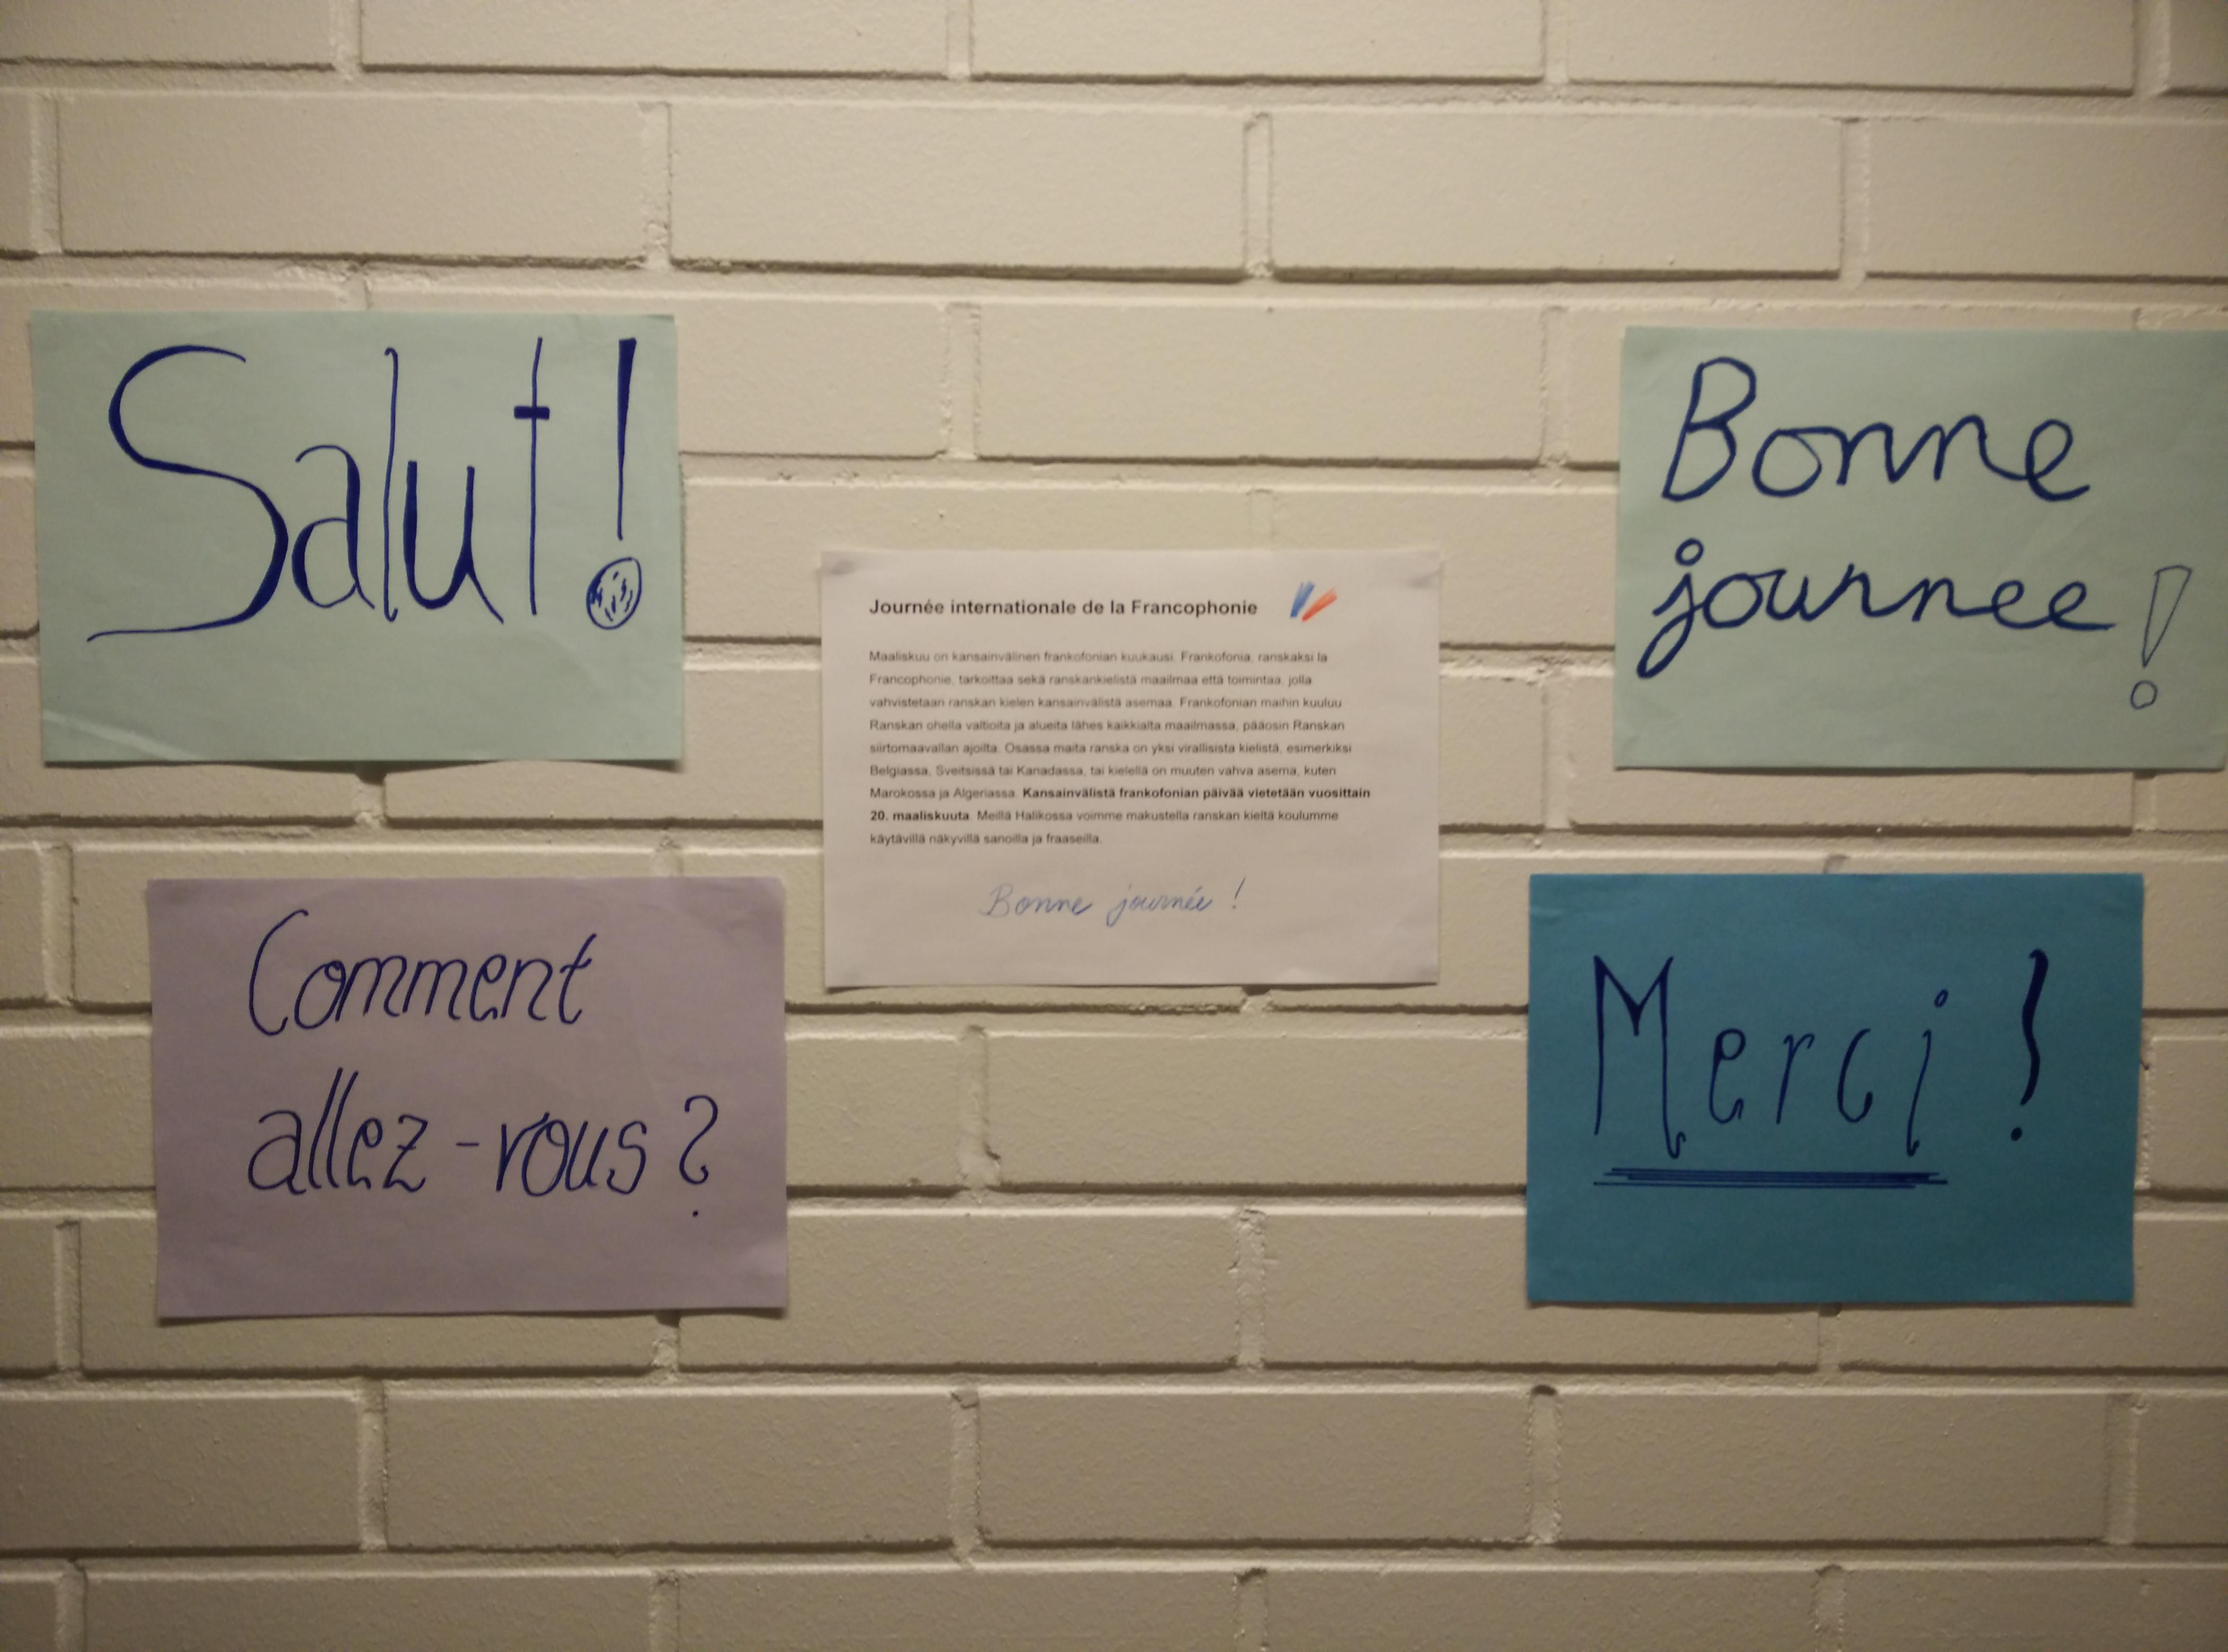 Salut!
Bonne
journee!
Journée internationale de la Francophonie
Maaliskuu on kansainvälinen frankofonian kuukausi. Frankofonia, ranskaksi la
Francophonie, tarkoittaa sekä ranskankielistä maailmaa että toimintaa, jolla
vahvistetaan ranskan kielen kansainvälistä asemaa. Frankofonian maihin kuuluu
Ranskan ohella valtioita ja alueita lähes kaikkialta maailmassa, pääosin Ranskan
siirtomaavallan ajoilta. Osassa maita ranska on yksi virallisista kielistä, esimerkiksi
Belgiassa, Sveitsissä tai Kanadassa, tai kielellä on muuten vahva asema, kuten
Marokossa ja Algeriassa. Kansainvälistä frankofonian päivää vietetään vuosittain
20. maaliskuuta. Meillä Halikossa voimme makustella ranskan kieltä koulumme
käytävillä näkyvillä sanoilla ja fraaseilla.
Bonne journée !
Comment
allez-vous?
Merci !